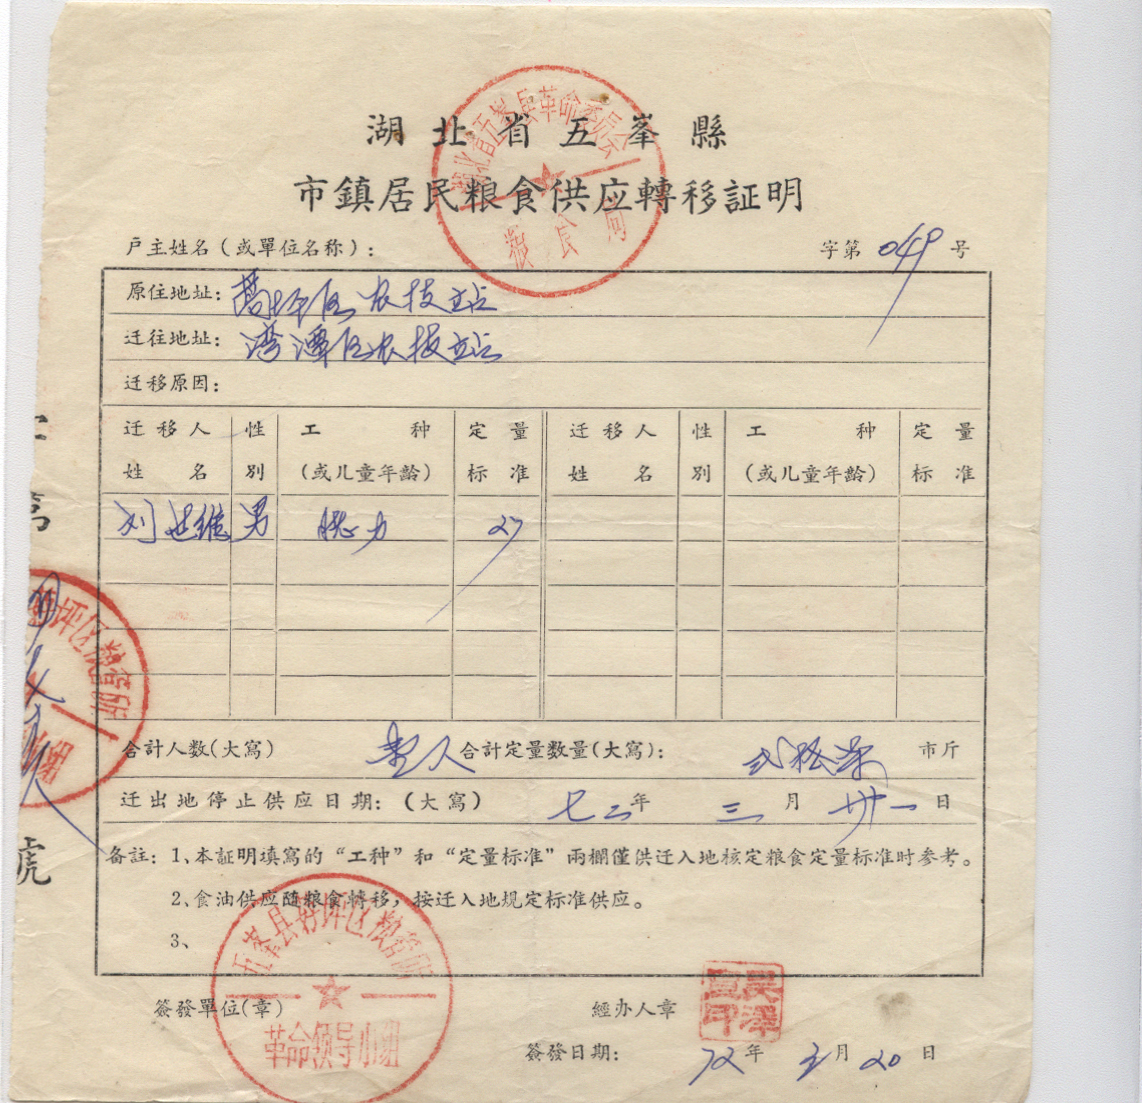 湖北省五峯縣
市鎮居民粮食供应轉移証明
湖北省五峯县革命委员会
粮食局
户主姓名(或單位名称):
字第 049 号
原住地址:蒿坪区农技站
迁往地址:湾潭区农技站
迁移原因:
迁移人姓名 性別 工种(或儿童年龄) 定量标准 迁移人姓名 性別 工种(或儿童年龄) 定量标准
刘 维 男 27
坪区粮管所
合計人数(大寫) 壹人 合計定量数量(大寫): 弍拾柒 市斤
迁出地停止供应日期:(大寫) 七二年 三月 卅一日
备註:1、本証明填寫的“工种”和“定量标准”兩欄僅供迁入地核定粮食定量标准时参考。
2、食油供应随粮食轉移,按迁入地規定标准供应。
3、
號
五峯县蒿坪区粮管所
革命领导小组
簽發單位(章)
經办人章
簽發日期: 72年 3月 20日